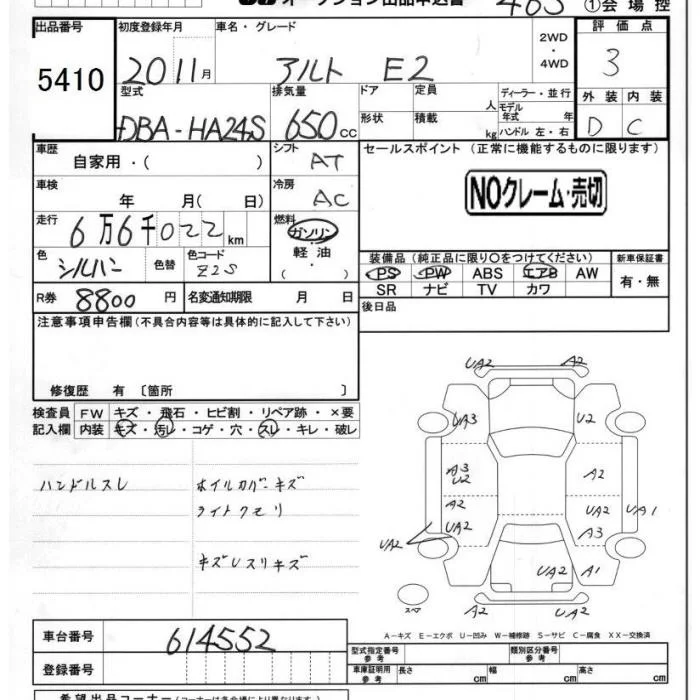 オークション出品申込書 465 ①会場控
出品番号 初度登録年月 車名・グレード 2WD・4WD 評価点
5410 2011月 アルト E2 3
型式 排気量 ドア 定員 人 ディーラー・並行 外装 内装
DBA-HA24S 650cc 形状 積載 kg モデル年式 年 ハンドル 左・右 D C
車歴 自家用・( ) シフト AT セールスポイント (正常に機能するものに限ります)
車検 年 月( 日) 冷房 AC NOクレーム・売切
走行 6万6千022km 燃料 ガソリン・軽油・( )
色 シルバー 色替 色コード Z2S 装備品(純正品に限り○をつけてください) 新車保証書
PS PW ABS エアB AW 有・無
SR ナビ TV カワ
R券 8800円 名変通知期限 月 日 後日品
注意事項申告欄(不具合内容等は具体的に記入して下さい)
修復歴 有 〔箇所 〕
検査員 FW キズ・飛石・ヒビ割・リペア跡・×要
記入欄 内装 キズ・汚レ・コゲ・穴・スレ・キレ・破レ
ハンドルスレ ホイルカバーキズ
ライトクモリ
キズレスリキズ
UA2 A2
UA3 U2
A3 U2 A2
A2 UA2 UA1
UA2 A3
UA2
UA2 A1
スペア A2 UA2
A-キズ E-エクボ U-凹み W-補修跡 S-サビ C-腐食 XX-交換済
車台番号 614552
型式指定番号 参考 類別区分番号 参考
登録番号 車庫証明用 参考 長さ cm 幅 cm 高さ cm
希望出品コーナー(コーナーは各会場により異なります)